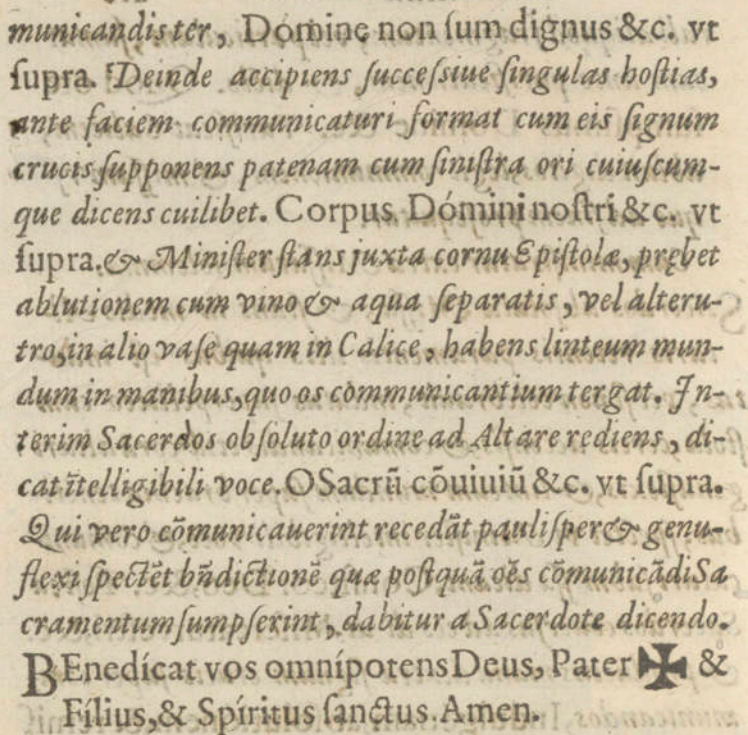 municandis ter, Domine non ſum dignus &c. vt
ſupra. Deinde accipiens ſucceſsiue ſingulas hoſtias,
ante faciem communicaturi format cum eis ſignum
crucis ſupponens patenam cum ſiniſtra ori cuiuſcum-
que dicens cuilibet. Corpus Dómini noſtri &c. vt
ſupra. & Miniſter ſtans juxta cornu Epiſtolæ, prębet
ablutionem cum vino & aqua ſeparatis, vel alteru-
tro, in alio vaſe quam in Calice, habens linteum mun-
dum in manibus, quo os communicantium tergat. In-
terim Sacerdos obſoluto ordine ad Altare rediens, di-
cat ītelligibili voce. O Sacrū cōuiuiū &c. vt ſupra.
Qui vero cōmunicauerint recedāt pauliſper & genu-
flexi ſpectēt bñdictionē quæ poſtquā oēs cōmunicādi Sa
cramentum ſumpſerint, dabitur a Sacerdote dicendo.
BEnedícat vos omnípotens Deus, Pater ✠ &
Fílius, & Spíritus ſanctus. Amen.